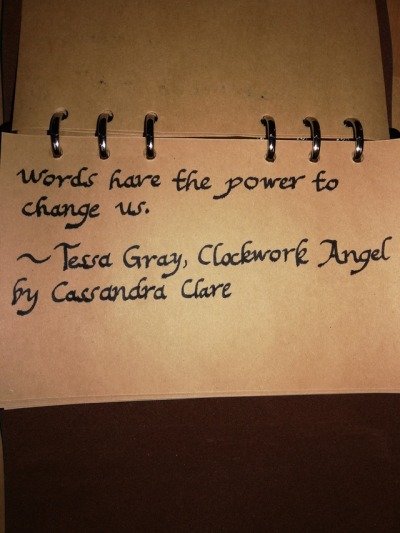 Words have the power to
change us.
~ Tessa Gray, Clockwork Angel
by Cassandra Clare